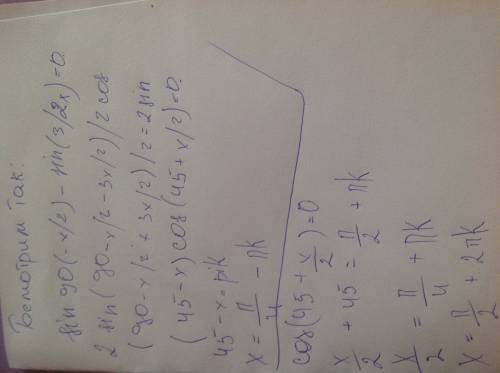 Посмотрим так:
sin 90(-x/2) - sin(3/2x)=0
2 sin(90-x/2-3x/2)/2 cos
(90-x/2+3x/2)/2=2sin
(45-x)cos(45+x/2)=0
45-x=pik
x=π/4-πk
cos(45+x/2)=0
x/2+45=π/2+πk
x/2=π/4+πk
x=π/2+2πk